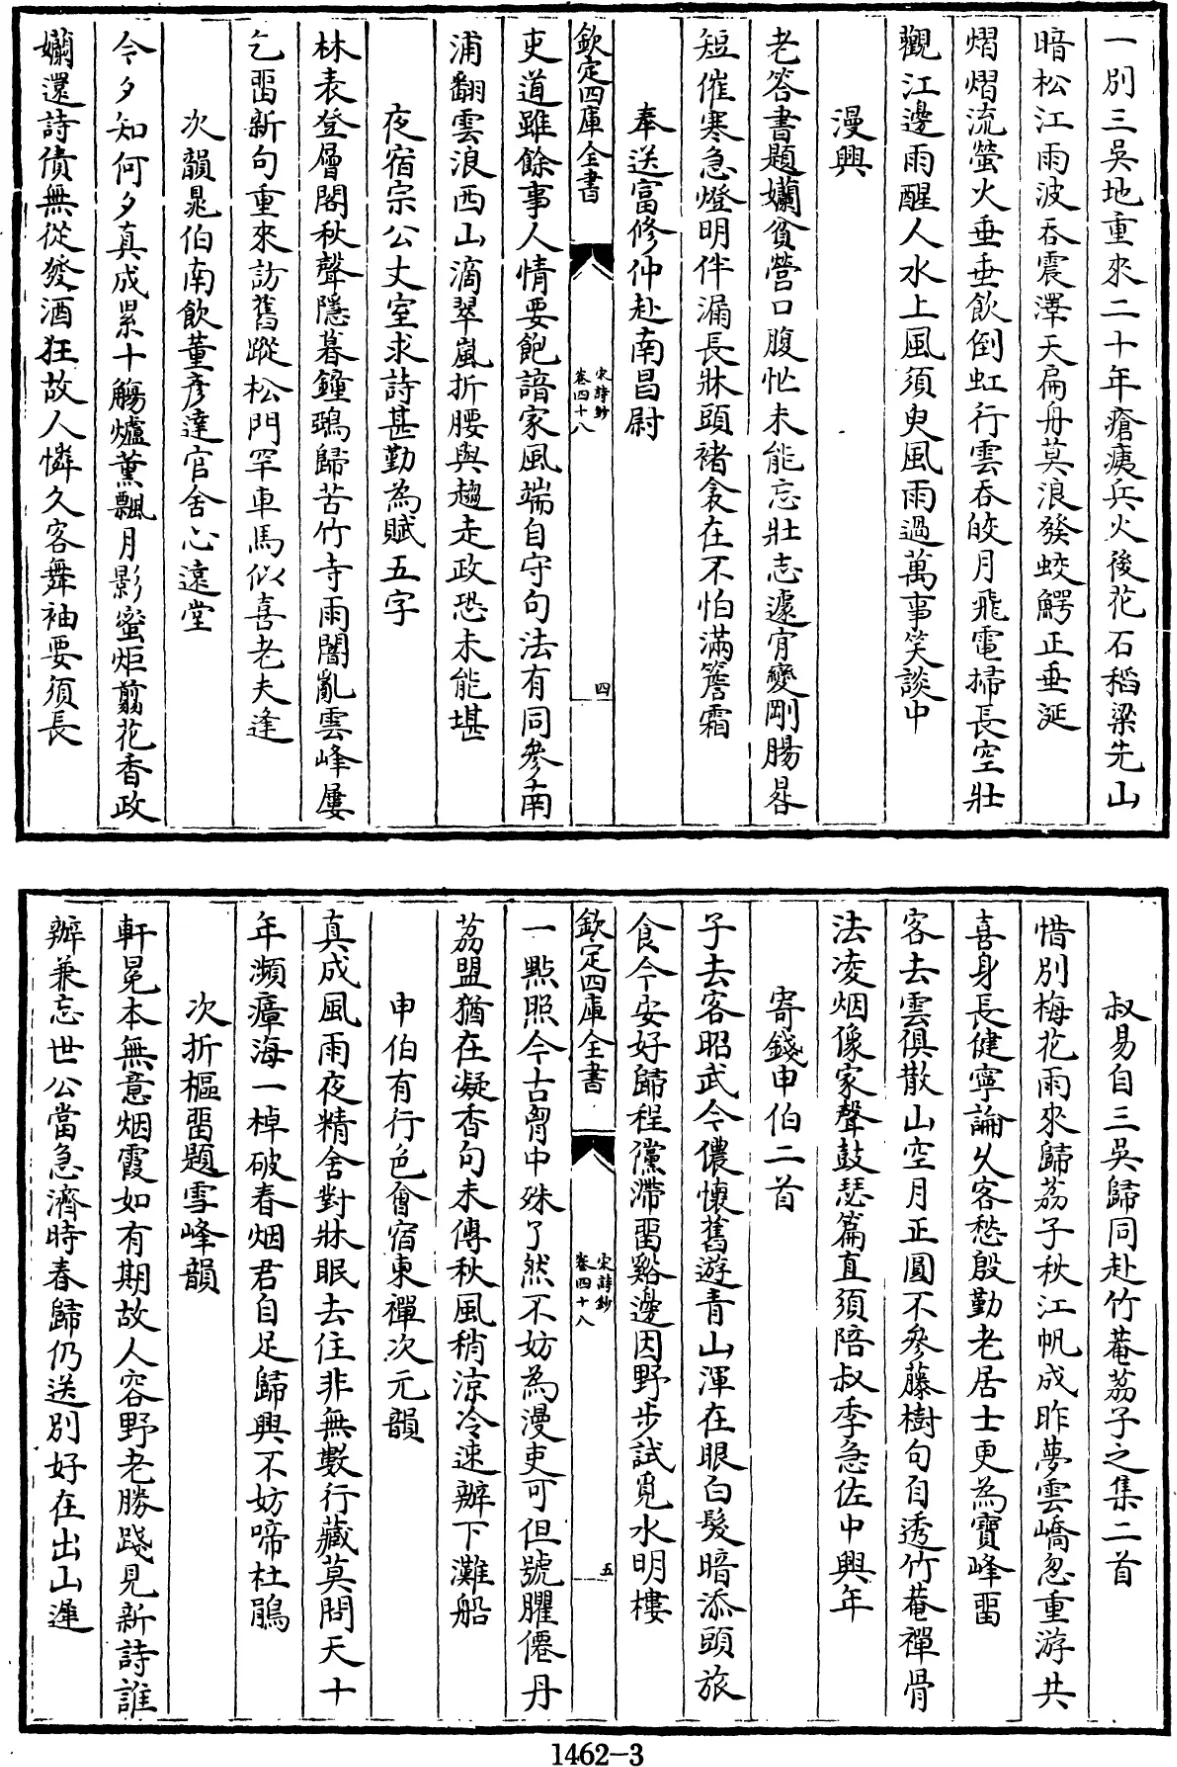 一別三吳地重來二十年瘡痍兵火後花石稻粱先山
暗松江雨波吞震澤天扁舟莫浪發蛟鰐正垂涎
熠熠流螢火垂垂飲倒虹行雲吞皎月飛電掃長空壯
觀江邊雨醒人水上風須臾風雨過萬事笑談中
漫興
老答書題嬾貧營口腹忙未能忘壯志遽肯變剛腸晷
短催寒急燈明伴漏長牀頭褚衾在不怕滿簷霜
奉送富修仲赴南昌尉
欽定四庫全書
宋詩鈔
卷四十八
四
吏道雖餘事人情要飽諳家風端自守句法有同參南
浦翻雲浪西山滴翠嵐折腰與趨走政恐未能堪
夜宿宗公丈室求詩甚勤為賦五字
林表登層閣秋聲隱暮鐘鵶歸苦竹寺雨闇亂雲峰屢
乞畱新句重來訪舊蹤松門罕車馬似喜老夫逢
次韻晁伯南飲董彥達官舍心遠堂
今夕知何夕真成累十觴爐薰飄月影蜜炬翦花香政
嬾還詩債無從發酒狂故人憐久客舞袖要須長
叔易自三吳歸同赴竹菴荔子之集二首
惜別梅花雨來歸荔子秋江帆成昨夢雲嶠忽重游共
喜身長健寧論久客愁殷勤老居士更為寶峰畱
客去雲俱散山空月正圓不參藤樹句自透竹菴禪骨
法凌烟像家聲鼓瑟篇直須陪叔季急佐中興年
寄錢申伯二首
子去客昭武令儂懷舊遊青山渾在眼白髮暗添頭旅
食今安好歸程儻滯畱谿邊因野步試覓水明樓
欽定四庫全書
宋詩鈔
卷四十八
五
一點照今古胷中殊了然不妨為漫吏可但號臞僊丹
荔盟猶在凝香句未傳秋風稍涼冷速辦下灘船
申伯有行色會宿東禪次元韻
真成風雨夜精舍對牀眠去住非無數行藏莫問天十
年瀕瘴海一棹破春烟君自足歸興不妨啼杜鵑
次折樞畱題雪峰韻
軒冕本無意烟霞如有期故人容野老勝踐見新詩誰
辦兼忘世公當急濟時春歸仍送別好在出山遲
1462-3